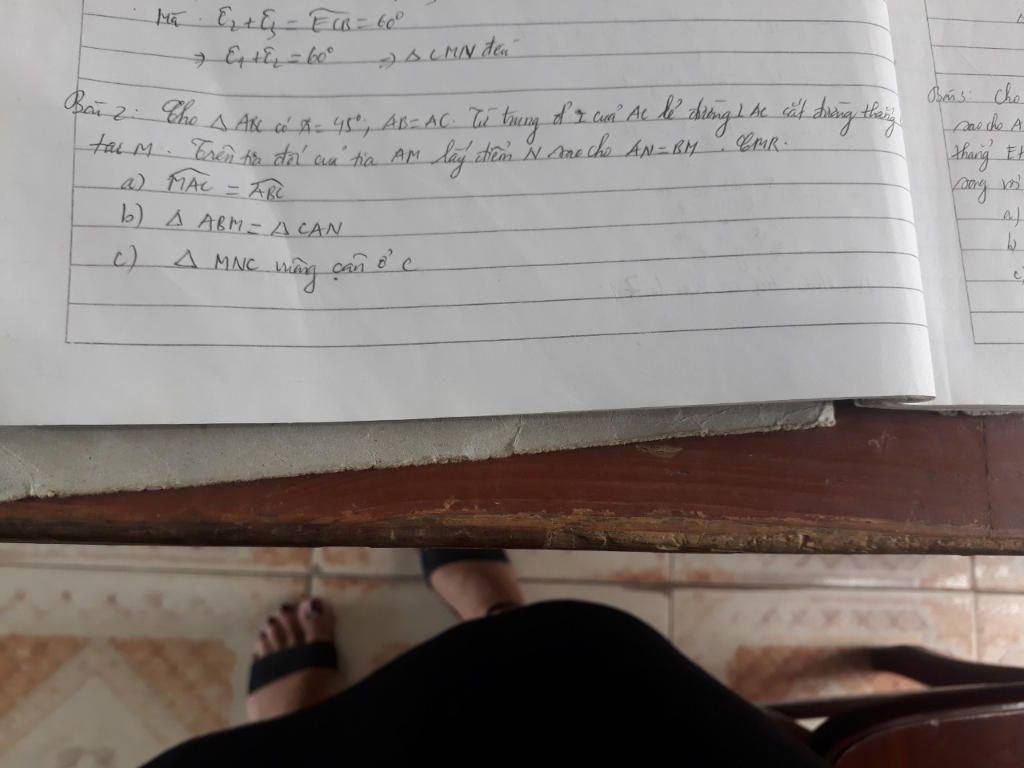 Mà . Ê2 + Ê3 = ECB = 60°
⇒ Ê1 + Ê2 = 60° ⇒ △ CMN đều
Bài 2: Cho △ ABC có Â = 45°, AB = AC. Từ trung đ' I của AC kẻ đường ⊥ AC cắt đường thẳng
tại M. Trên tia đối của tia AM lấy điểm N sao cho AN = BM. CMR.
a) MAC = ABC
b) △ ABM = △ CAN
c) △ MNC vuông cân ở C
Bài 3: Cho
sao cho A
thẳng
song
a)
b
c